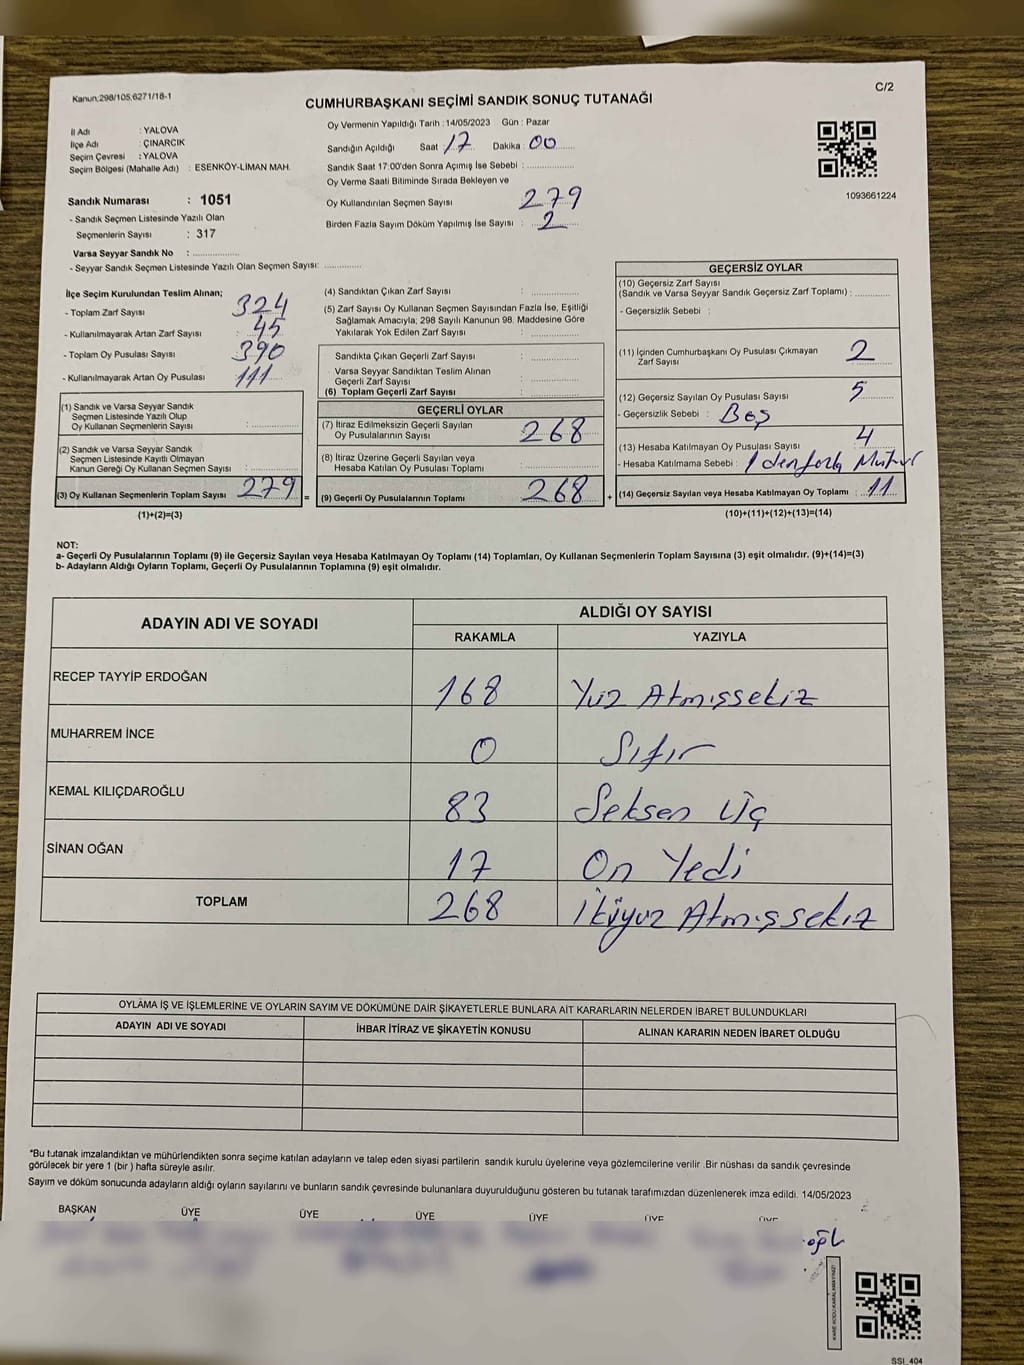 Kanun,298/105,6271/18-1
C/2
CUMHURBAŞKANI SEÇİMİ SANDIK SONUÇ TUTANAĞI
İl Adı : YALOVA
İlçe Adı : ÇINARCIK
Seçim Çevresi : YALOVA
Seçim Bölgesi (Mahalle Adı) : ESENKÖY-LİMAN MAH.
Sandık Numarası : 1051
- Sandık Seçmen Listesinde Yazılı Olan
Seçmenlerin Sayısı : 317
Varsa Seyyar Sandık No : ..............
- Seyyar Sandık Seçmen Listesinde Yazılı Olan Seçmen Sayısı: ..............
Oy Vermenin Yapıldığı Tarih : 14/05/2023 Gün : Pazar
Sandığın Açıldığı Saat 17 Dakika : 00
Sandık Saat 17:00'den Sonra Açımış İse Sebebi : ..............
Oy Verme Saati Bitiminde Sırada Bekleyen ve
Oy Kullandırılan Seçmen Sayısı 279
Birden Fazla Sayım Döküm Yapılmış İse Sayısı : 2
1093661224
İlçe Seçim Kurulundan Teslim Alınan;
- Toplam Zarf Sayısı 324
- Kullanılmayarak Artan Zarf Sayısı : 45
- Toplam Oy Pusulası Sayısı : 390
- Kullanılmayarak Artan Oy Pusulası : 111
(1) Sandık ve Varsa Seyyar Sandık
Seçmen Listesinde Yazılı Olup
Oy Kullanan Seçmenlerin Sayısı : ..............
(2) Sandık ve Varsa Seyyar Sandık
Seçmen Listesinde Kayıtlı Olmayan
Kanun Gereği Oy Kullanan Seçmen Sayısı : ..............
(3) Oy Kullanan Seçmenlerin Toplam Sayısı : 279 =
(1)+(2)=(3)
(4) Sandıktan Çıkan Zarf Sayısı : ..............
(5) Zarf Sayısı Oy Kullanan Seçmen Sayısından Fazla İse, Eşitliği
Sağlamak Amacıyla; 298 Sayılı Kanunun 98. Maddesine Göre
Yakılarak Yok Edilen Zarf Sayısı : ..............
Sandıkta Çıkan Geçerli Zarf Sayısı : ..............
Varsa Seyyar Sandıktan Teslim Alınan
Geçerli Zarf Sayısı : ..............
(6) Toplam Geçerli Zarf Sayısı : ..............
GEÇERLİ OYLAR
(7) İtiraz Edilmeksizin Geçerli Sayılan
Oy Pusulalarının Sayısı : 268
(8) İtiraz Üzerine Geçerli Sayılan veya
Hesaba Katılan Oy Pusulası Toplamı : ..............
(9) Geçerli Oy Pusulalarının Toplamı : 268 +
GEÇERSİZ OYLAR
(10) Geçersiz Zarf Sayısı
(Sandık ve Varsa Seyyar Sandık Geçersiz Zarf Toplamı) : ..............
- Geçersizlik Sebebi :
(11) İçinden Cumhurbaşkanı Oy Pusulası Çıkmayan
Zarf Sayısı : 2
(12) Geçersiz Sayılan Oy Pusulası Sayısı : 5
- Geçersizlik Sebebi : Boş
(13) Hesaba Katılmayan Oy Pusulası Sayısı : 4
- Hesaba Katılmama Sebebi : 1 den fazla Mühür
(14) Geçersiz Sayılan veya Hesaba Katılmayan Oy Toplamı : 11
(10)+(11)+(12)+(13)=(14)
NOT:
a- Geçerli Oy Pusulalarının Toplamı (9) ile Geçersiz Sayılan veya Hesaba Katılmayan Oy Toplamı (14) Toplamları, Oy Kullanan Seçmenlerin Toplam Sayısına (3) eşit olmalıdır. (9)+(14)=(3)
b- Adayların Aldığı Oyların Toplamı, Geçerli Oy Pusulalarının Toplamına (9) eşit olmalıdır.
ADAYIN ADI VE SOYADI ALDIĞI OY SAYISI
RAKAMLA YAZIYLA
RECEP TAYYİP ERDOĞAN 168 Yüz Atmışsekiz
MUHARREM İNCE 0 Sıfır
KEMAL KILIÇDAROĞLU 83 Seksen Üç
SİNAN OĞAN 17 On Yedi
TOPLAM 268 İkiyüz Atmışsekiz
OYLAMA İŞ VE İŞLEMLERİNE VE OYLARIN SAYIM VE DÖKÜMÜNE DAİR ŞİKAYETLERLE BUNLARA AİT KARARLARIN NELERDEN İBARET BULUNDUKLARI
ADAYIN ADI VE SOYADI İHBAR İTİRAZ VE ŞİKAYETİN KONUSU ALINAN KARARIN NEDEN İBARET OLDUĞU
*Bu tutanak imzalandıktan ve mühürlendikten sonra seçime katılan adayların ve talep eden siyasi partilerin sandık kurulu üyelerine veya gözlemcilerine verilir .Bir nüshası da sandık çevresinde
görülecek bir yere 1 (bir ) hafta süreyle asılır.
Sayım ve döküm sonucunda adayların aldığı oyların sayılarını ve bunların sandık çevresinde bulunanlara duyurulduğunu gösteren bu tutanak tarafımızdan düzenlenerek imza edildi. 14/05/2023
BAŞKAN ÜYE ÜYE ÜYE ÜYE ÜYE ÜYE
SSI_404